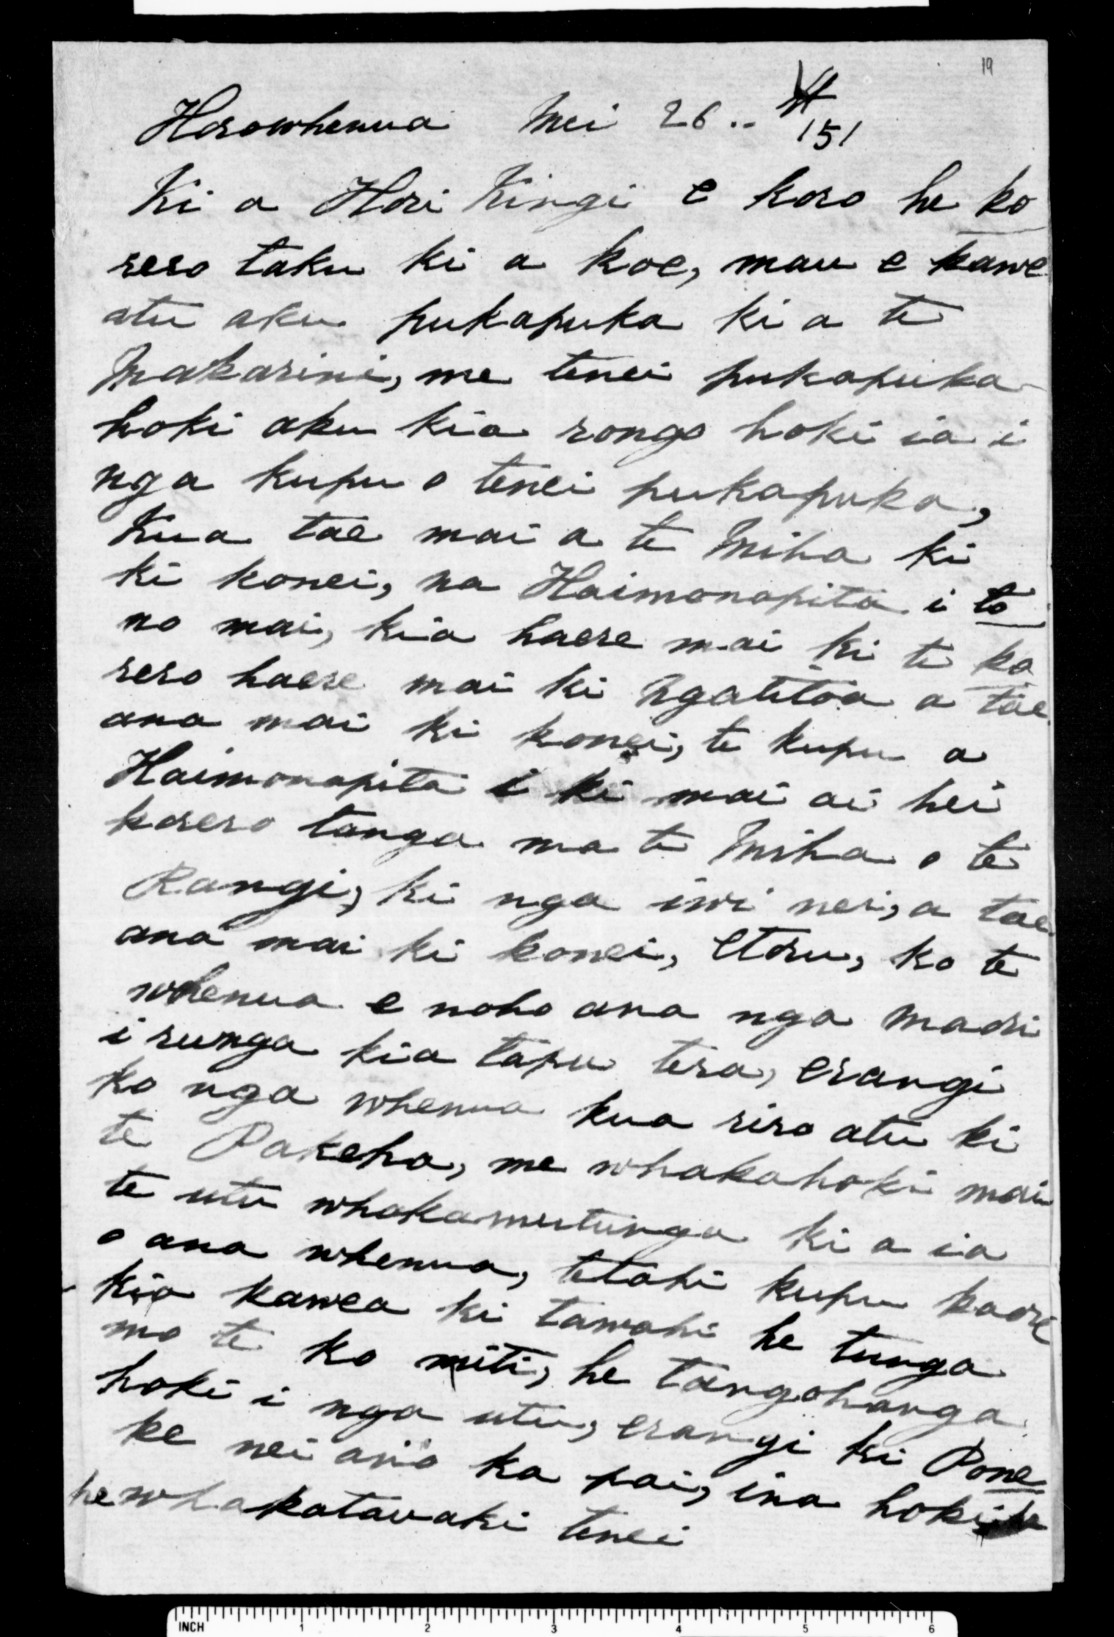 19
Horowhenua Mei 26..
151
Ki a Hori Kingi e koro he ko
rero taku ki a koe, mau e kawe
atu aku pukapuka ki a te
Makarini, me tenei pukapuka
hoki aku kia rongo hoki ia i
nga kupu o tenei pukapuka,
Kua tae mai a te Miha ki
ki konei, na Haimonapita i to
no mai, kia haere mai ki te ko
rero haere mai ki Ngatitoa a tae
ana mai ki konei, te kupu a
Haimonapita i ki mai ai hei
korero tanga ma te Miha o te
Rangi, ki nga iwi nei, a tae
ana mai ki konei, etoru, ko te
whenua e noho ana nga maori
i runga kia tapu tera, erangi
ko nga whenua kua riro atu ki
te Pakeha, me whakahoki mai
te utu whakamutunga ki a ia
o ana whenua, tetahi kupu kaore
kia kawea ki tawahi he tunga
mo te ko miti, he tangohanga
hoki i nga utu, erangi ki Pone
ke nei ano ka pai, ina hoki
he whakatauaki tenei
INCH 1 2 3 4 5 6